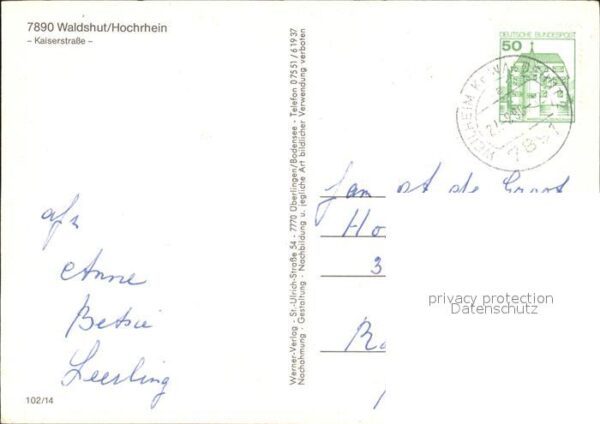 7890 Waldshut/Hochrhein
– Kaiserstraße –
afz
Anne
Betsie
Leerling
102/14
Werner-Verlag - St.-Ulrich-Straße 54 - 7770 Überlingen/Bodensee - Telefon 07551/61937
Nachahmung - Gestaltung - Nachbildung u. jegliche Art bildlicher Verwendung verboten
DEUTSCHE BUNDESPOST
50
WEILHEIM
789
Ho
3
privacy protection
Datenschutz